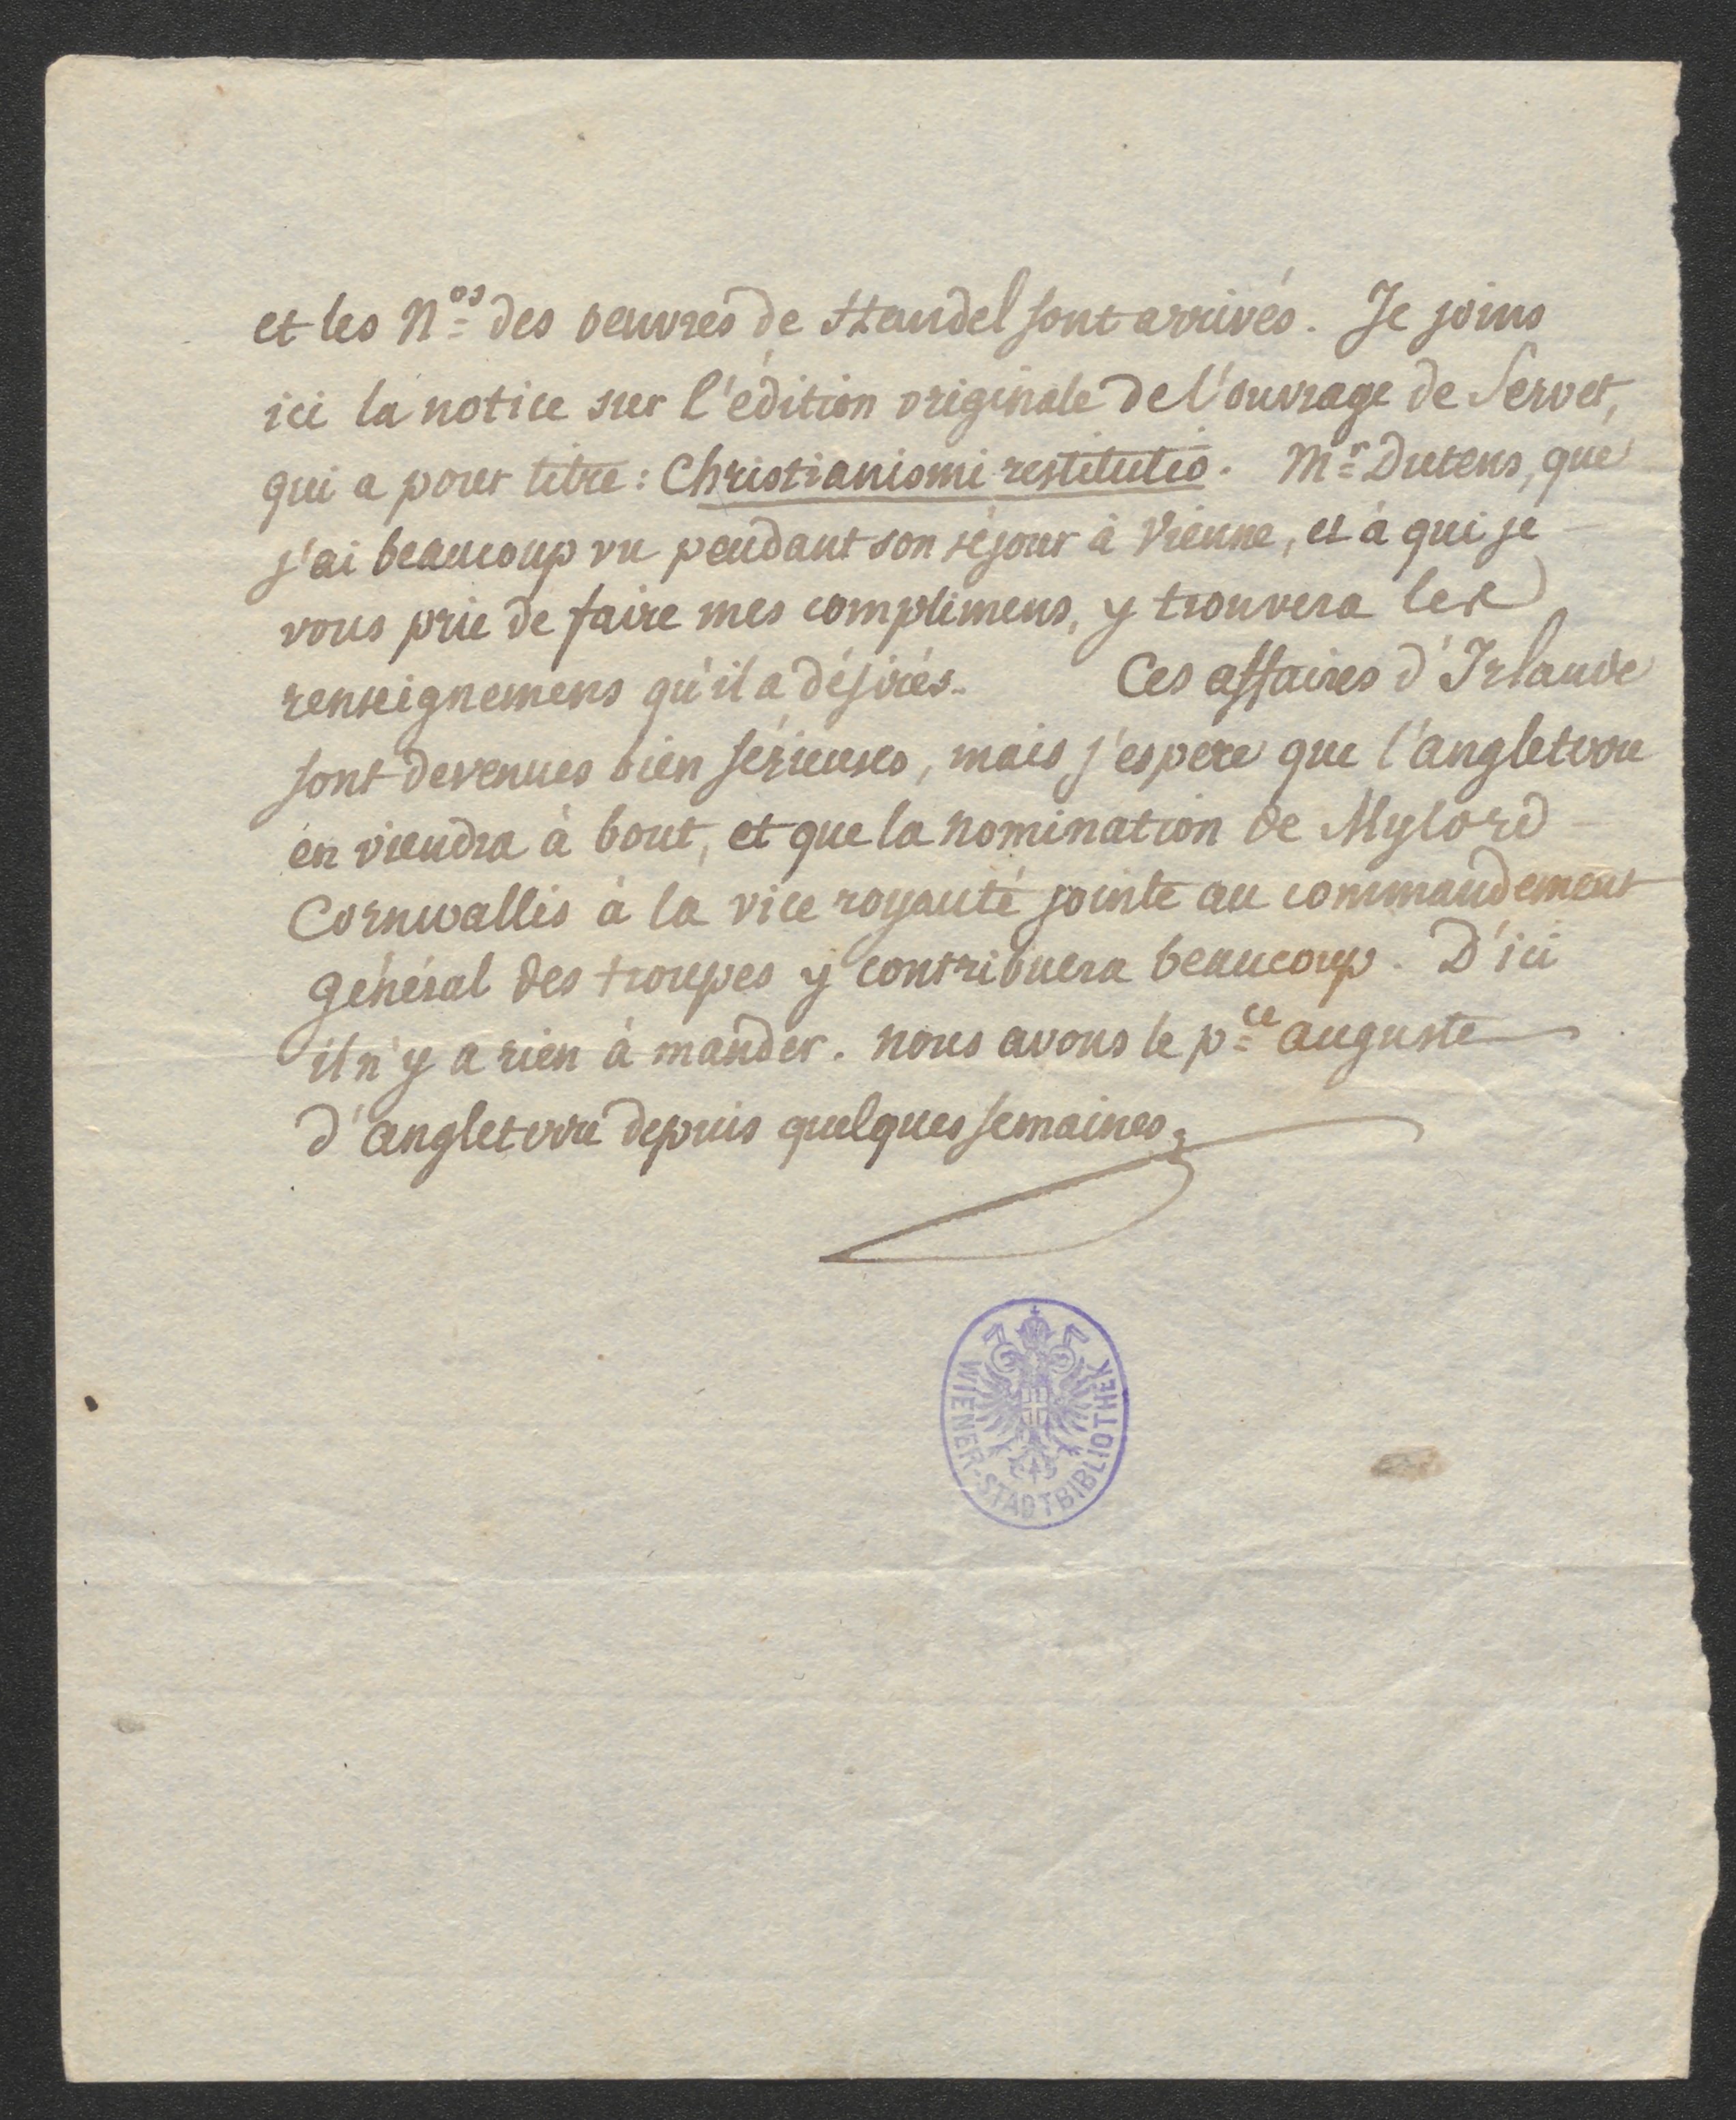 et les N.os des oeuvres de Haendel sont arrivés. Je joins
ici la notice sur l'édition originale de l'ouvrage de Servet,
qui a pour titre: Christianismi restitutio. Mr Dutens, que
j'ai beaucoup vu pendant son séjour à Vienne, et à qui je
vous prie de faire mes complimens, y trouvera les
renseignemens qu'il a désirés. Ces affaires d'Irlande
sont devenues bien sérieuses, mais j'espere que l'angleterre
en viendra à bout, et que la nomination de Mylord
Cornwallis à la vice royauté jointe au commandement
général des troupes y contribuera beaucoup. D'ici
il n'y a rien à mander. nous avons le pce auguste
d'angleterre depuis quelques semaines.
WIENER-STADTBIBLIOTHEK